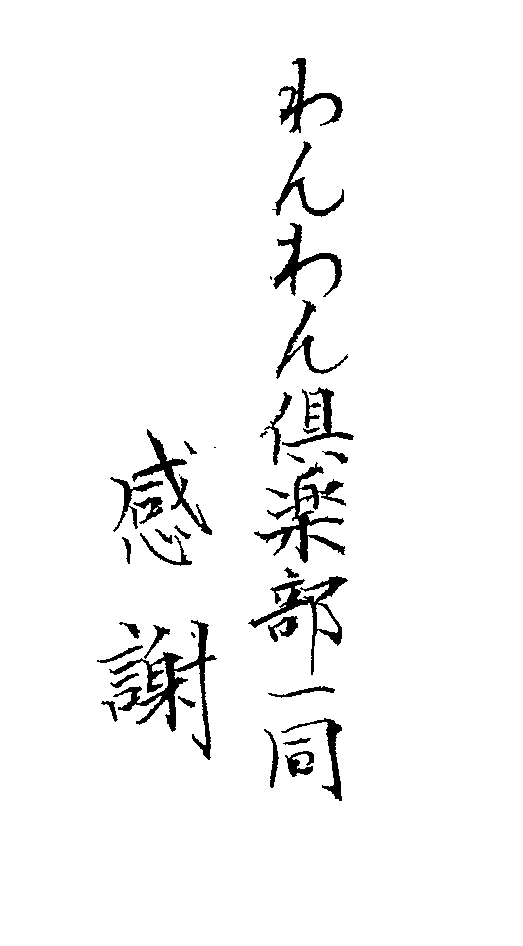 わんわん倶楽部一同
感謝